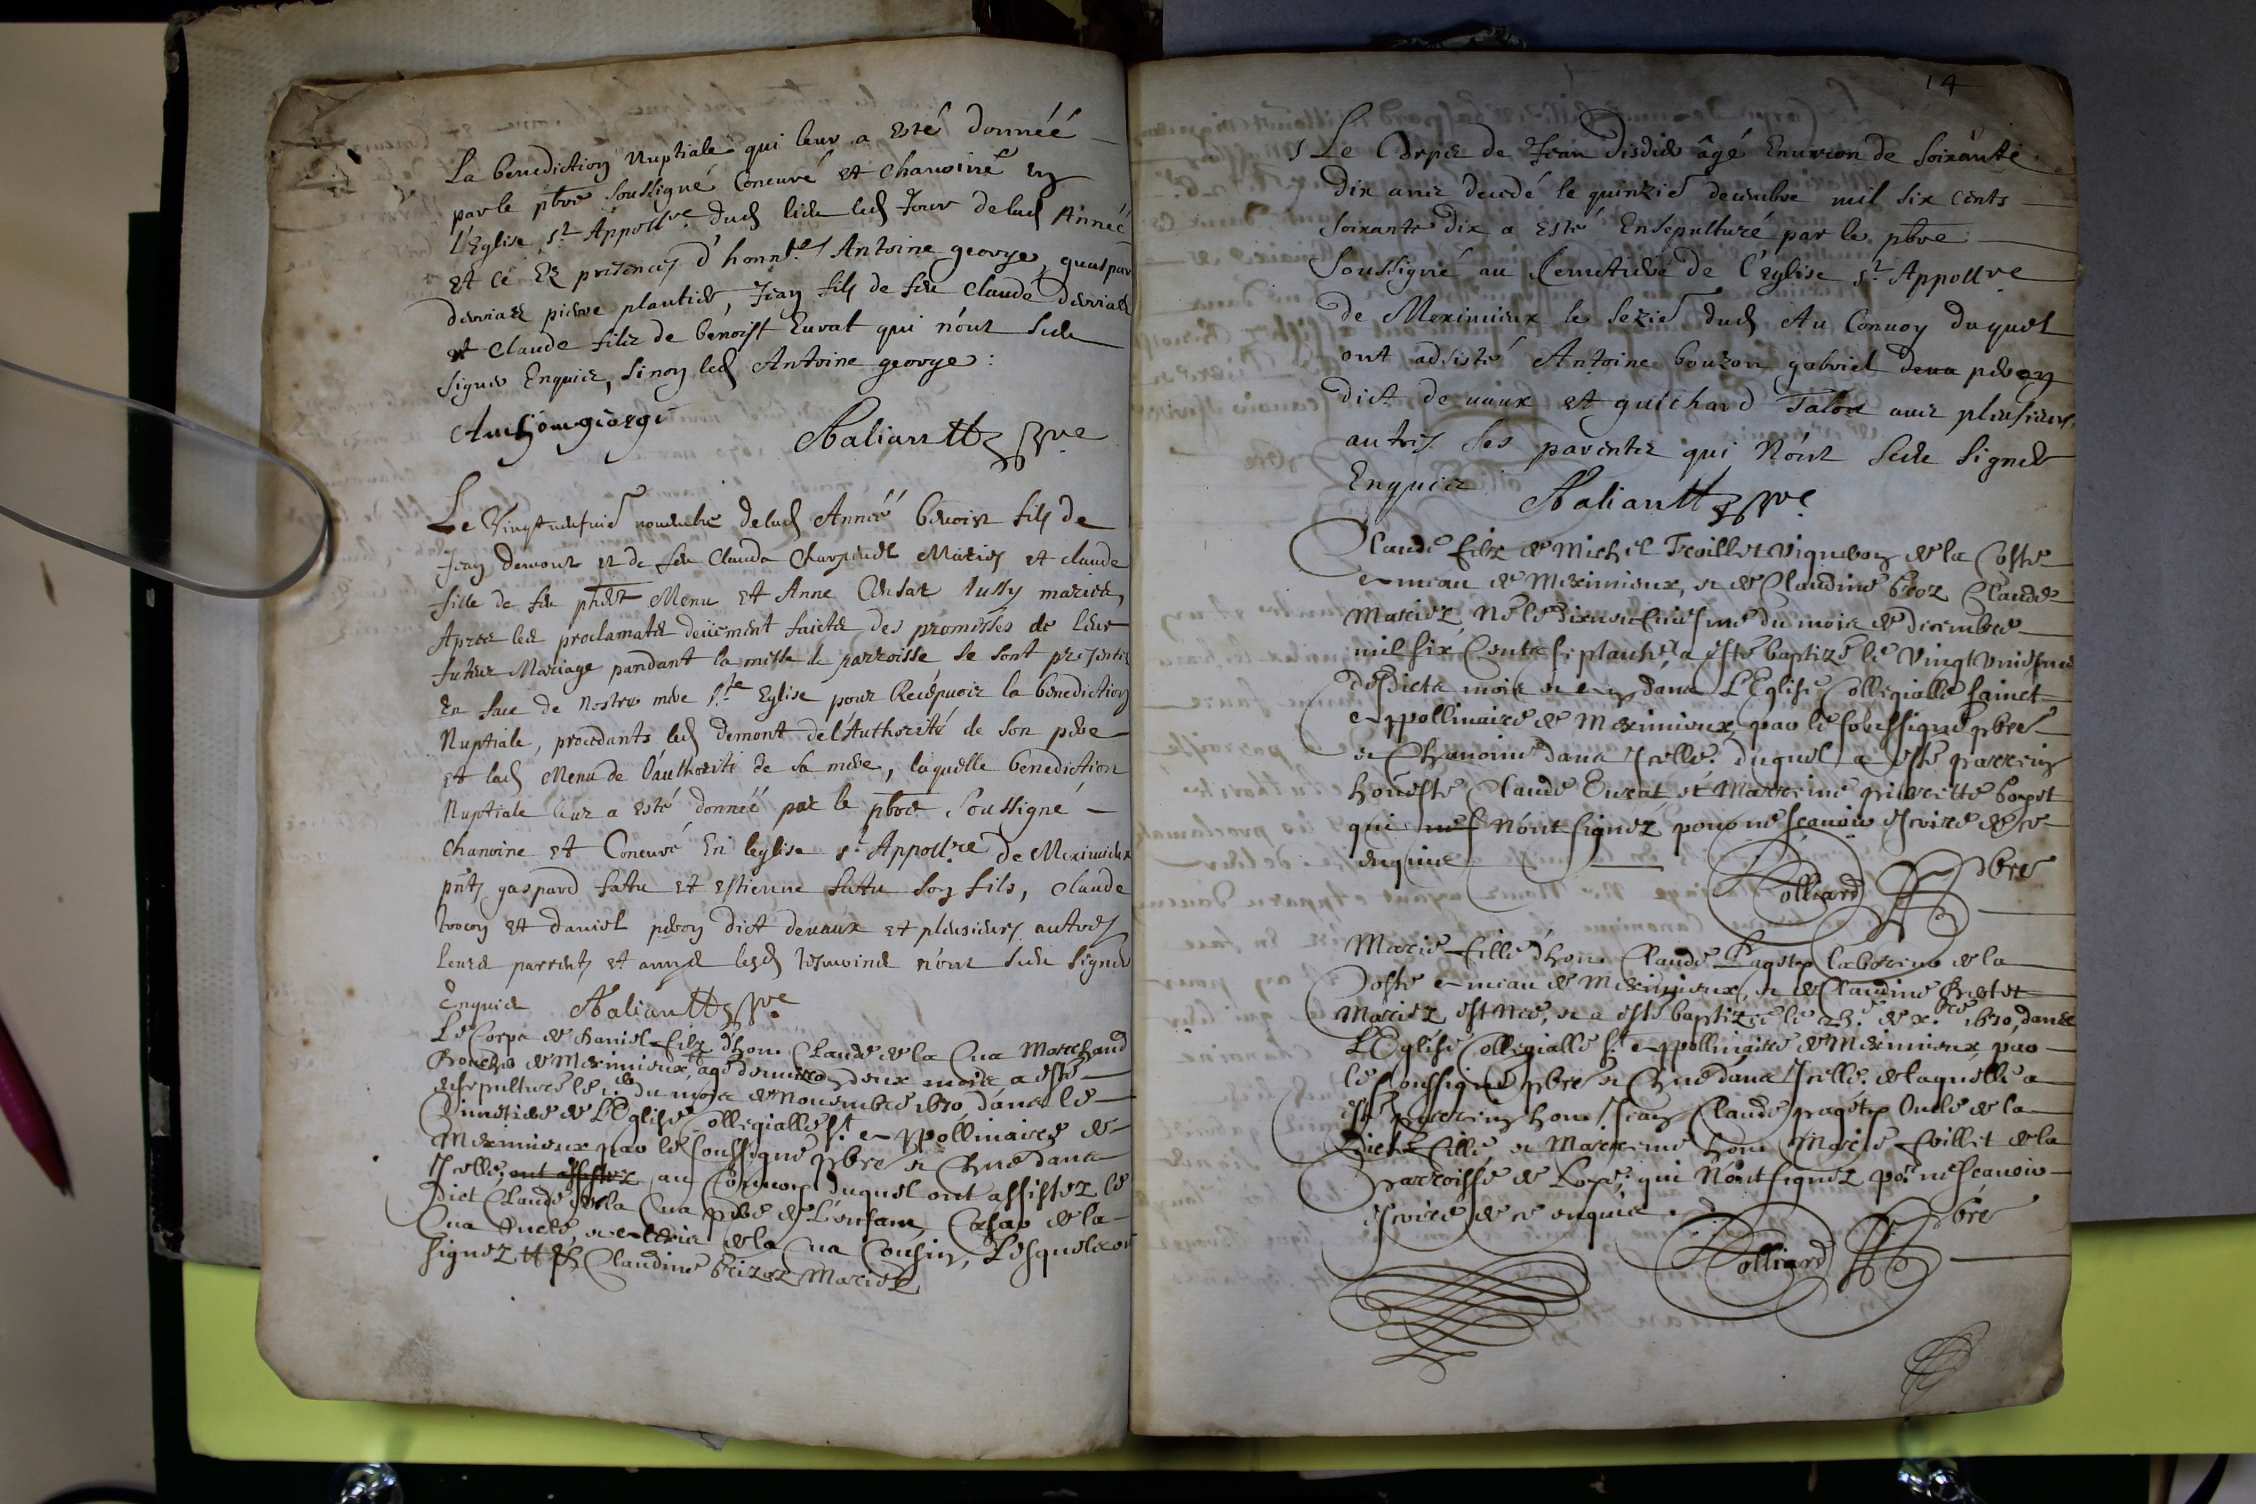 La benediction Nuptiale qui leur a esté donnéé
par le pbre soussigné Coneuré et chanoine en
l'Eglise st Appollre dud lieu led Jour delad Annéé
et ce Ez presences d'honnbles Antoine george, guaspar
derriaz pierre plantier, Jean fils de feu claude derriaz
et Claude filz de benoist Eurat qui n'ont sceu
signer Enquis, sinon led Antoine george:
Anthoin giorge Chaliantt pbre
Le Vingtneufuie nouembre delad Annéé benoist fils de
Jean demont et de feu Clauda Charpenet Mariés et claude
fille de feu phbert Menu et Anne aussy mariés,
Apres les proclamatz deüement faicte des promesses de leur
futeur Mariage pandant la messe de parroisse se sont presentés
En face de Nostre mere ste Eglise pour Recepuoir la benediction
Nuptiale, procedants led demont de l'Authorité de son pere
et lad Menu de l'authorité de sa mere, laquelle benediction
Nuptiale leur a esté donnéé par le pbre soussigné
chanoine et Coneuré En leglise st Appollre de Meximieux
pnts gaspard fatu et estienne fatu son fils, claude
et daniel peron dict deuaux et plusieurs autres
leurs parrents et amys lesd n'ont sceu signer
Enquis Chaliantt pbre
Le Corps de Daniel filz d'hon. Claude de la Cua Marchand
Boucher de Meximieux, agé denuiron deux mois a esté
ensepulturé le du mois de Nouembre 1670 dans le
Cimetiere de L'Eglise Collegialle st Appollinaire de
Meximieux par le soussigné pbre et Chne dans
Icelle, ont assistez au Conuoy duquel ont assistez le
dict Claude de la Cua pere de L'enfant, Cesar de la
Cua Oncle, et de la Cua Cousin, Lesquels ont
signez Claudine Mariez
14
Le Corps de Jean Disdier âgé Enuiron de soixante
dix ans decedé le quinzie decembre mil six cents
soixante dix a esté Ensepulturé par le pbre
soussigné au Cemetiere de l'eglise st Appollre
de Meximieux le sezie dud Au Conuoy duquel
ont adsisté Antoine bouzon gabriel deua peron
dict de uaux et guichard Talon auec plusieurs
autres ses parents qui N'ont sceu signer
Enquis Chaliantt pbre
Claude filz de Michel Feuillet Vigneron de la Coste
emeau de Meximieux, et de Claudine Broz Claude
Mariez Né le dixneufuiesme du mois de decembre
mil six Cents septante, a esté baptizé le Vingt Vniesme
desdicts mois et an dans L'Eglise Collegialle sainct
Appollinaire de Meximieux, par le sobssigné pbre
et Chanoine dans Icelle. duquel a esté parrein
honeste Claude Eurat et Marreine pierrette borget
qui N'ont signez pour ne scauoir escrire de ce
enquis
Folliard pbre
Marie fille d'hon. Claude Pageto laboreur de la
Coste emeau de Meximieux, et de Claudine Bretet
Mariez est Née, et a esté baptizée le 23.e de x.bre 1670, dans
L'Eglise Collegialle st Appollinaire de Meximieux, par
le soussigné pbre et Chne dans Icelle. de laquelle a
esté parrein hon. Jean Claude pageto Oncle de la
dicte fille et Marreine hon. Marie feillet de la
Parroisse de Loye, qui N'ont signez po.r ne scauoir
escrire de ce enquis.
Folliard pbre